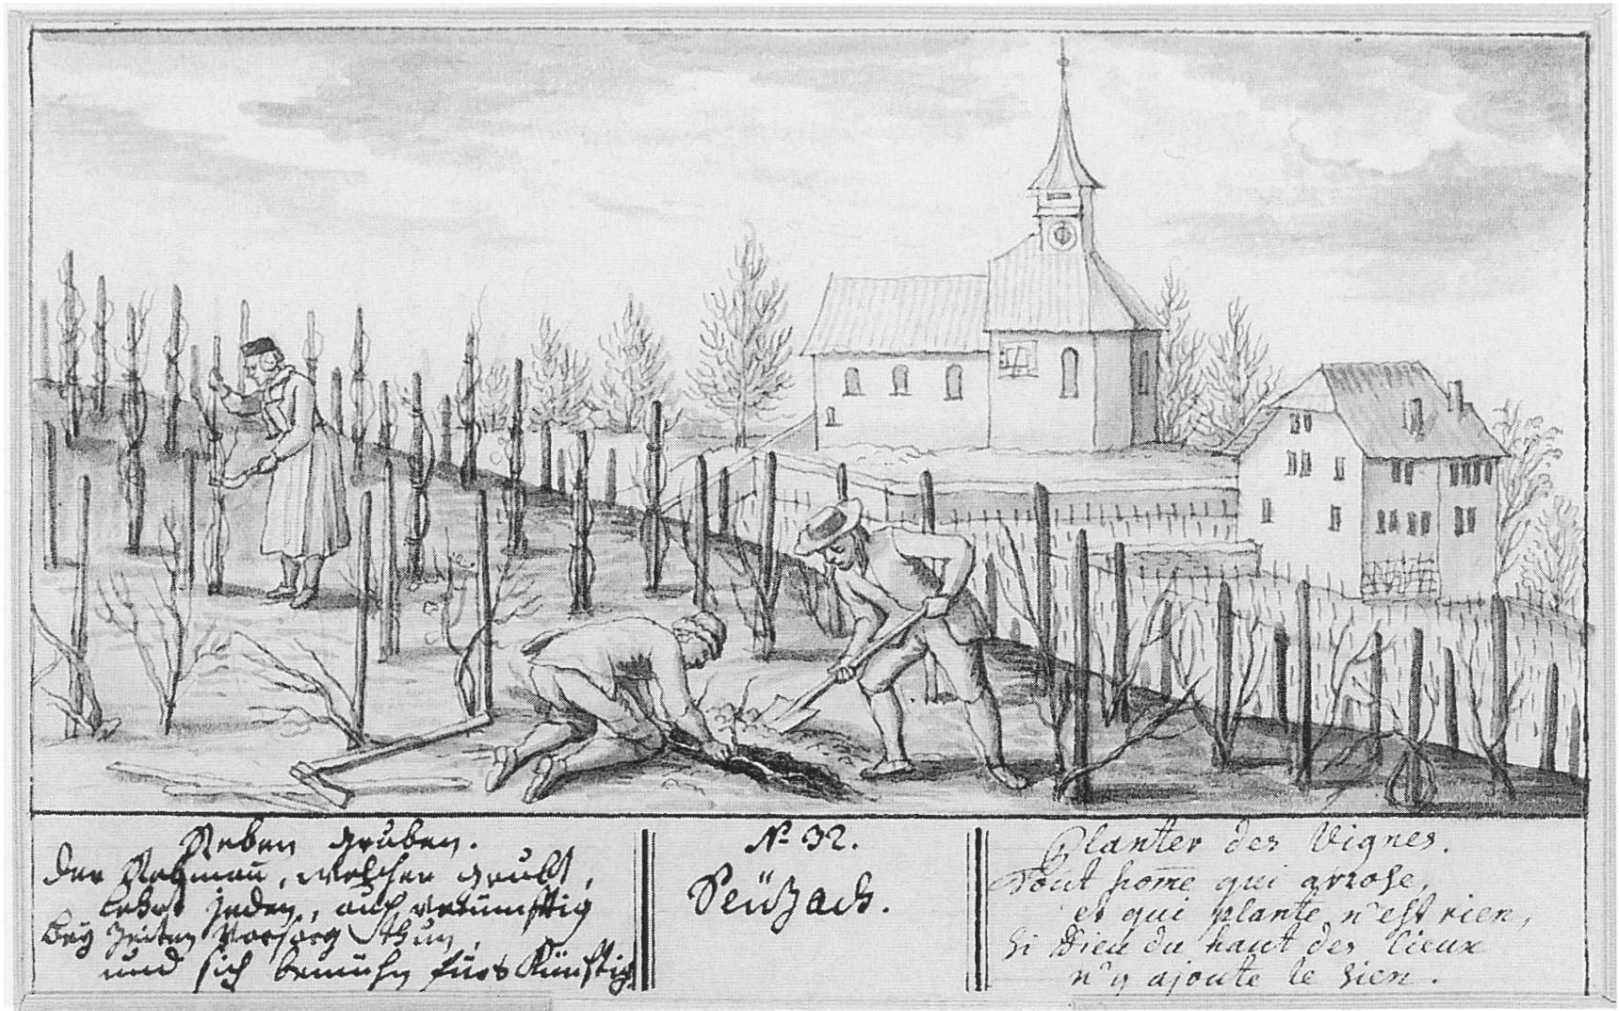 Reben gruben.
Der Rebmañ, welcher grubt,
Lehrt jeden, auch vernünftig
Bey Zeiten Vorsorg thun,
und sich bemühn fürs Künftig
No 32.
Seüzach.
Planter des Vignes.
Tout hom̄e qui arrose,
et qui plante n'est rien,
Si Dieu du haut des Cieux
n'y ajoute le sien.